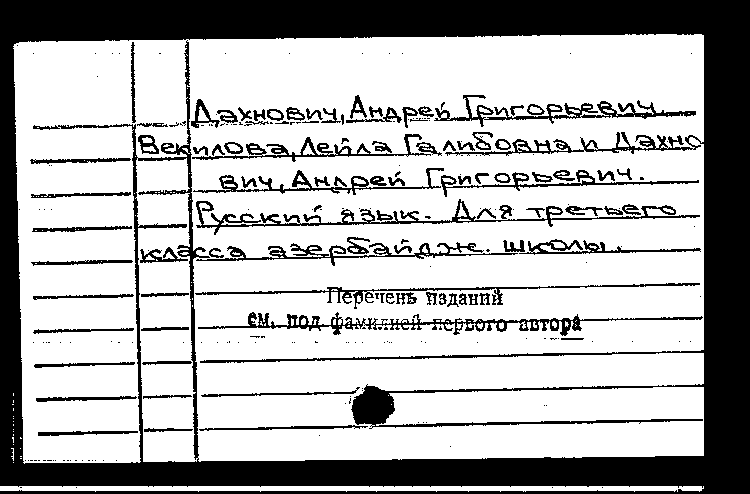 Дахнович, Андрей Григорьевич.
Векилова, Лейла Галибовна и Дахно
вич, Андрей Григорьевич.
Русский язык. Для третьего
класса азербайдж. школы.
Перечень изданий
см. под фамилией первого автора